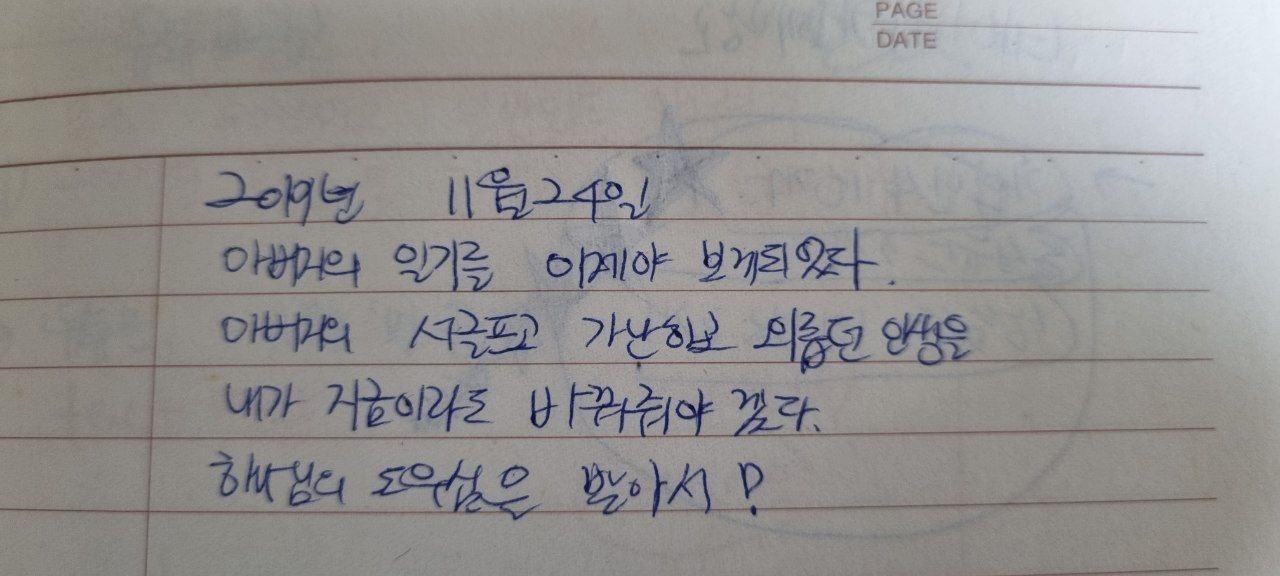 PAGE
DATE
2019년 11월 24일
아버지의 일기를 이제야 보게되었다.
아버지의 서글프고 가난하고 외롭던 인생을
내가 지금이라도 바꿔줘야 겠다.
하나님의 도우심을 받아서!